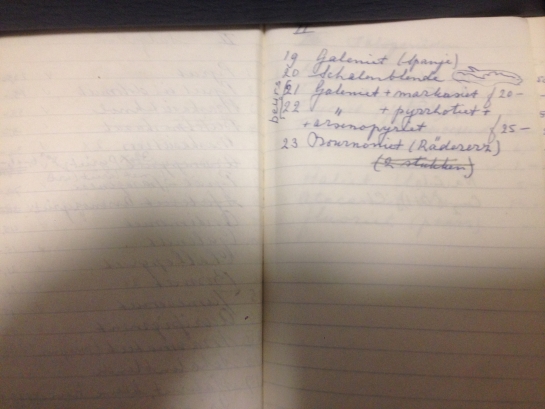 11
19 Galeniet (Spanje)
20 Schalenblende
beurs
21 Galeniet + markasiet f 20-
22 " + pyrrhotiet +
+ arsenopyriet f 25-
23 Bournoniet (Rädererz)
(2 stukken)